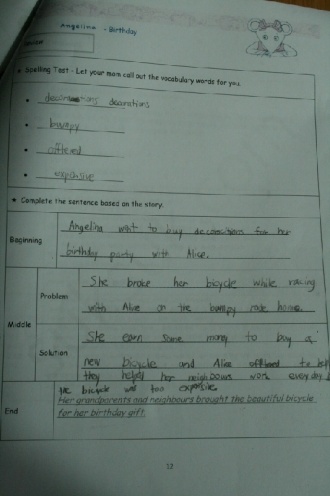 Angelina - Birthday
★ Spelling Test - Let your mom call out the vocabulary words for you.
decorations
bumpy
offered
expensive
★ Complete the sentence based on the story.
Beginning
Angelina want to buy decorations for her
birthday party with Alice.
Middle
Problem
She broke her bicycle while racing
with Alice on the bumpy rode home.
Solution
She earn some money to buy a
new bicycle and Alice offered to help
they helped her neighbours work everyday
the bicycle was too expensive.
End
Her grandparents and neighbours brought the beautiful bicycle
for her birthday gift.